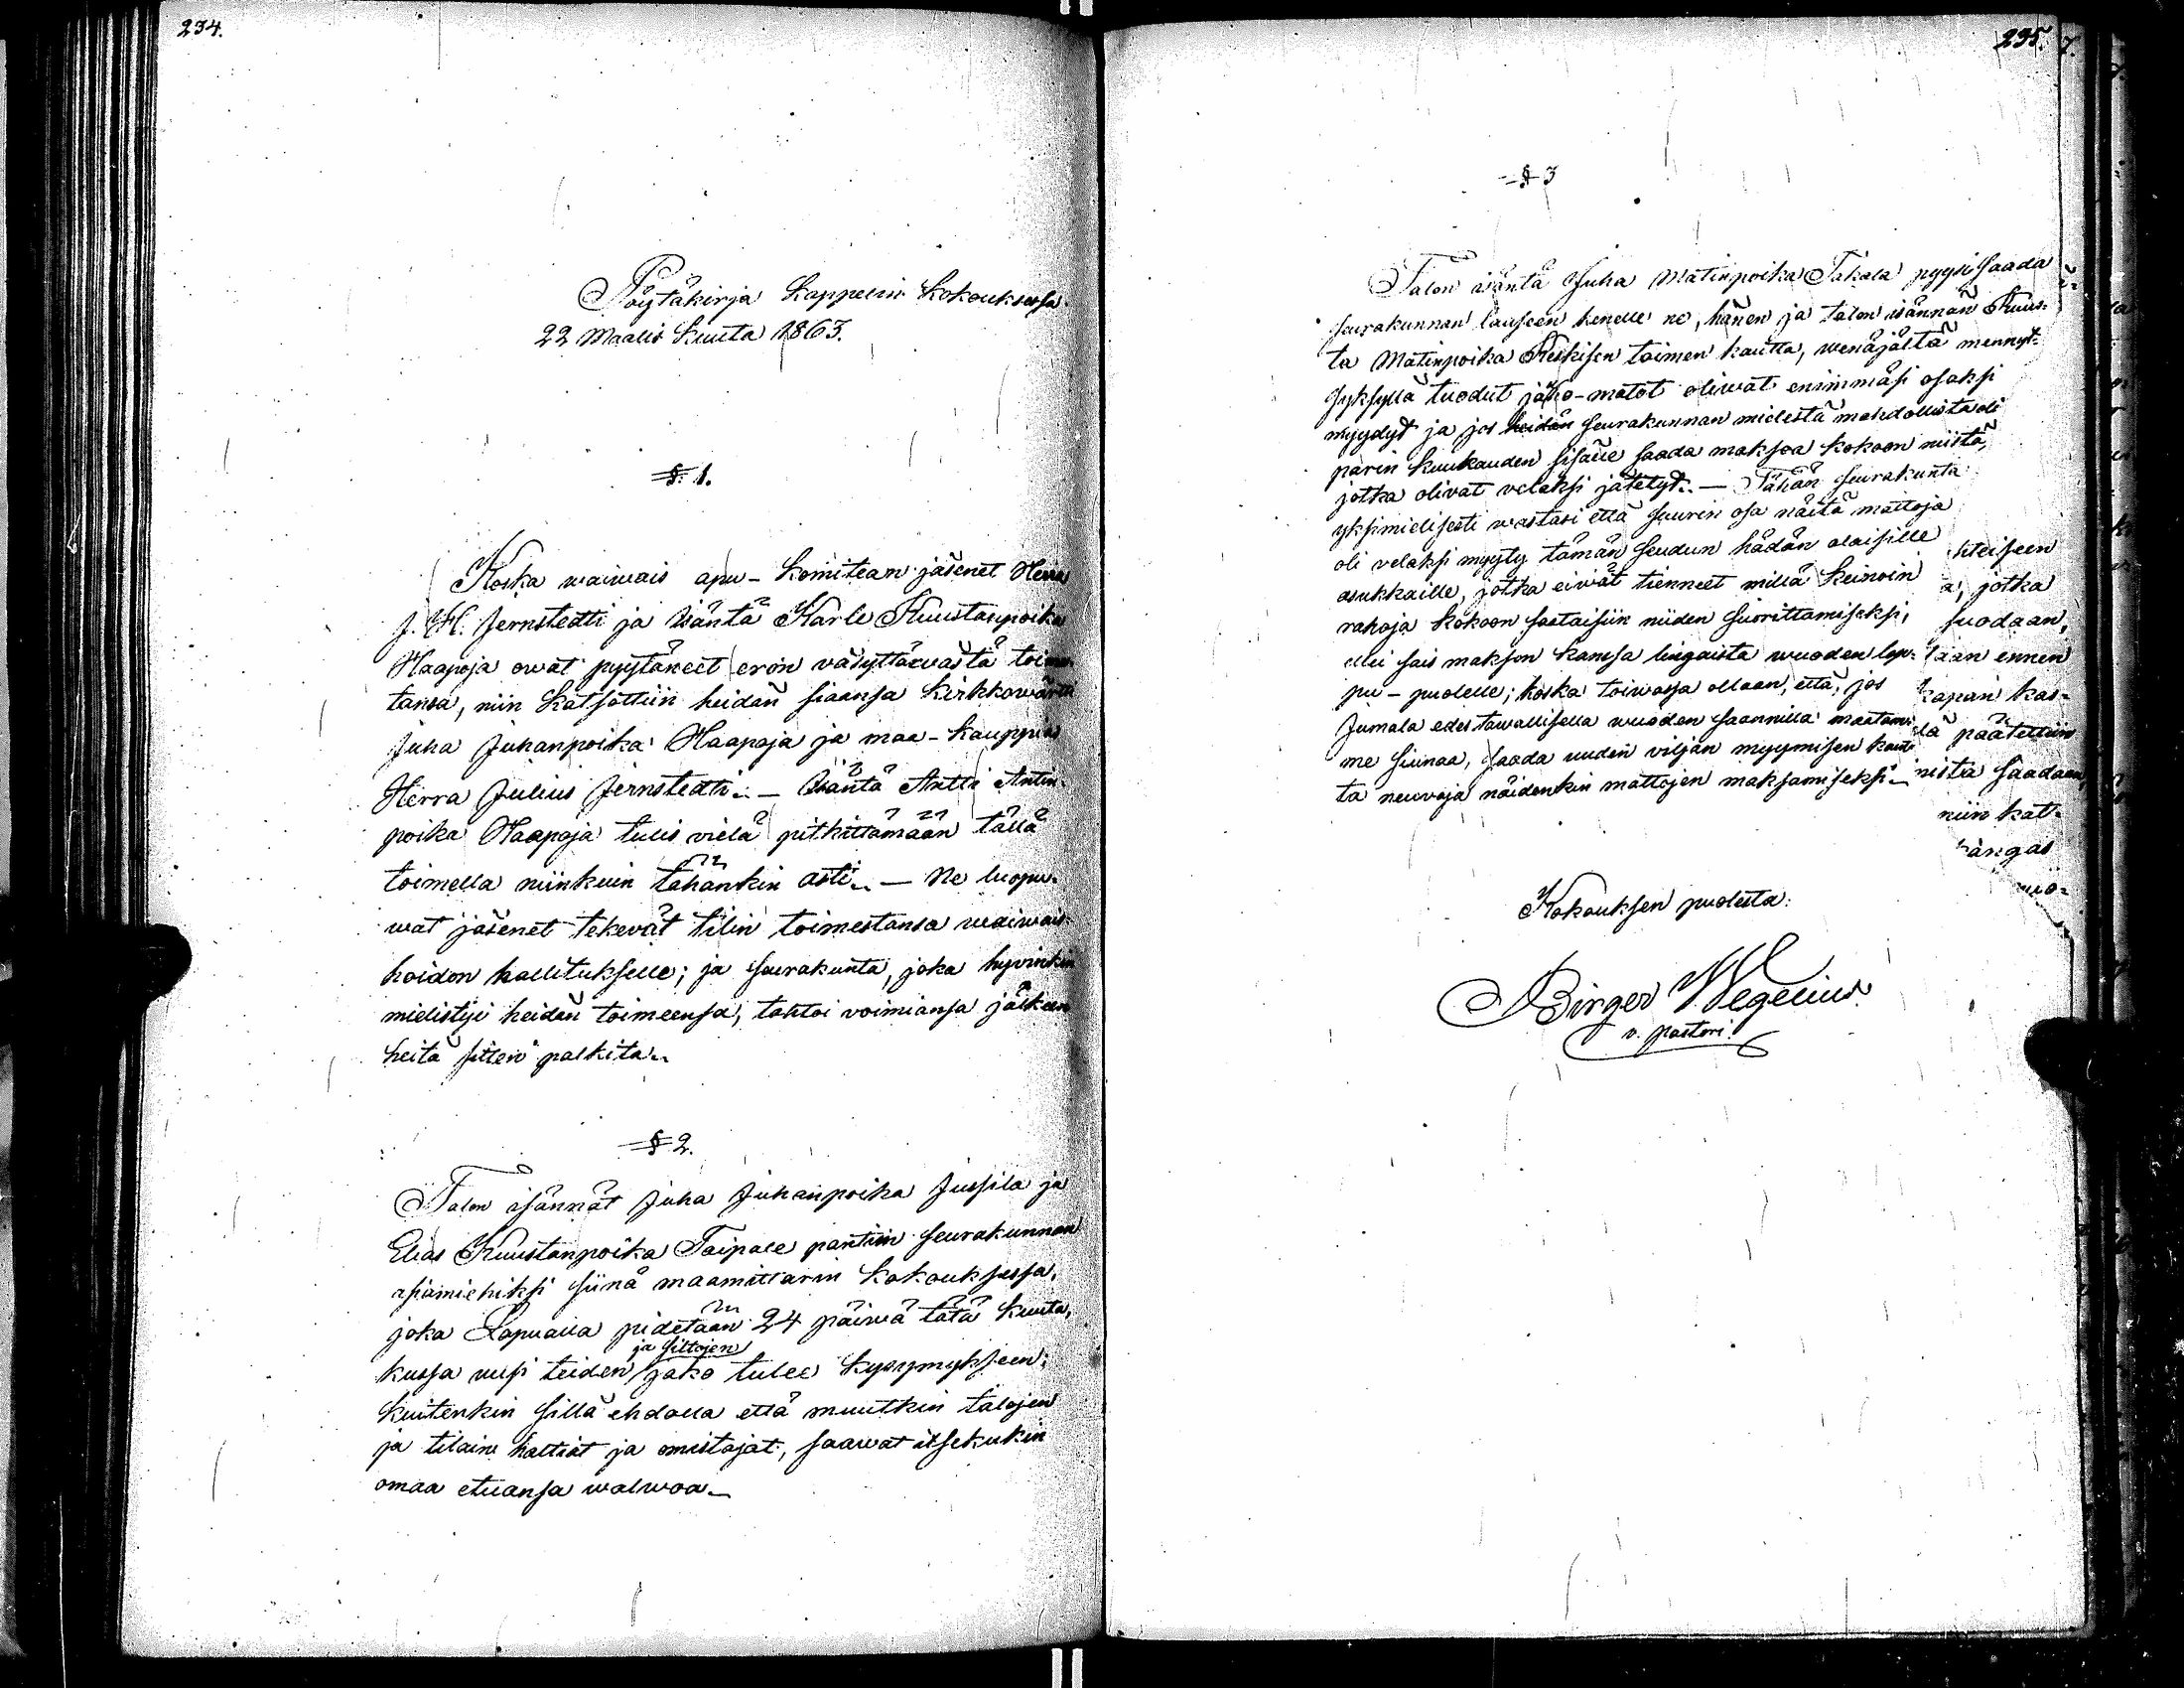 234.
Pöytäkirja Kappelin Kokouksessa
22 Maalis Kuuta 1863.
§. 1.
Koska waiwais apu-Komitean jäsenet Herra
J. H. Jernstedti ja Isäntä Karle Kuustanpoika
Haapoja owat pyytäneet eron väsyttäwästä toimes-
tansa, niin Katsottiin heidän siaansa Kirkkowärti
Juha Juhanpoika Haapoja ja maa-Kauppias
Herra Julius Jernstedti. — Isäntä Antti Antin-
poika Haapoja tulis vielä pitkittämään tällä
toimella niinkuin tähänkin asti. — Ne luopu-
wat jäsenet tekevät tilin toimestansa waiwais-
hoidon hallitukselle; ja seurakunta, joka hyvinkin
mielistyi heidän toimeensa, tahtoi voimiansa jälkeen
heitä sitten palkita.
§ 2.
Talon isännät Juha Juhanpoika Jussila ja
Elias Kuustanpoika Taipale pantiin seurakunnan
asiamiehiksi siinä maamittarin Kokouksessa,
joka Lapualla pidetään 24 päiwä tätä Kuuta,
ja siltojen
kussa uusi teiden jako tulee Kysymykseen;
Kuitenkin sillä ehdolla että muutkin talojen
ja tilain haltiat ja omistajat, saawat itsekukin
omaa etuansa walwoa.
235.
7.
§ 3
Talon isäntä Juha Matinpoika Takala pyysi saada
seurakunnan lauseen kenelle ne, hänen ja talon isännän Kuus-
ta Matinpoika Keskisen toimen kautta, wenäjältä mennyt-
syksyllä tuodut jauho-matot oliwat enimmäsi osaksi
myydyt ja jos heidän seurakunnan mielestä mahdollista oli
parin Kuukauden sisälle saada maksoa kokoon niistä,
jotka olivat velaksi jätetyt. — Tähän seurakunta
yksimielisesti wastasi että suurin osa näitä mattoja
oli velaksi myyty tämän seudun hädän alaisille
asukkaille, jotka eiwät tienneet millä Keinoin
rahoja Kokoon saataisiin niiden suorittamiseksi,
ellei sais makson kanssa lingaista wuoden lop-
pu-puolelle; koska toiwossa ollaan, että, jos
Jumala edes tawallisella wuoden saannilla maatam-
me siunaa, saada uuden viljan myymisen kaut-
ta neuvoja näidenkin mattojen maksamiseksi.
kteiseen
a, jotka
suodaan,
taan ennen
kapan kas-
lä päätettiin
nista saadaan,
niin kat-
kangas
Kokouksen puolesta:
Birger Wegelius.
v. pastori.